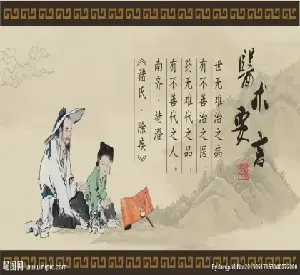 醫术要言
世无难治之病
有不善治之医
药无难代之品
有不善代之人。
南齐·褚澄
《褚氏·除疾》
昵图网 www.nipic.com